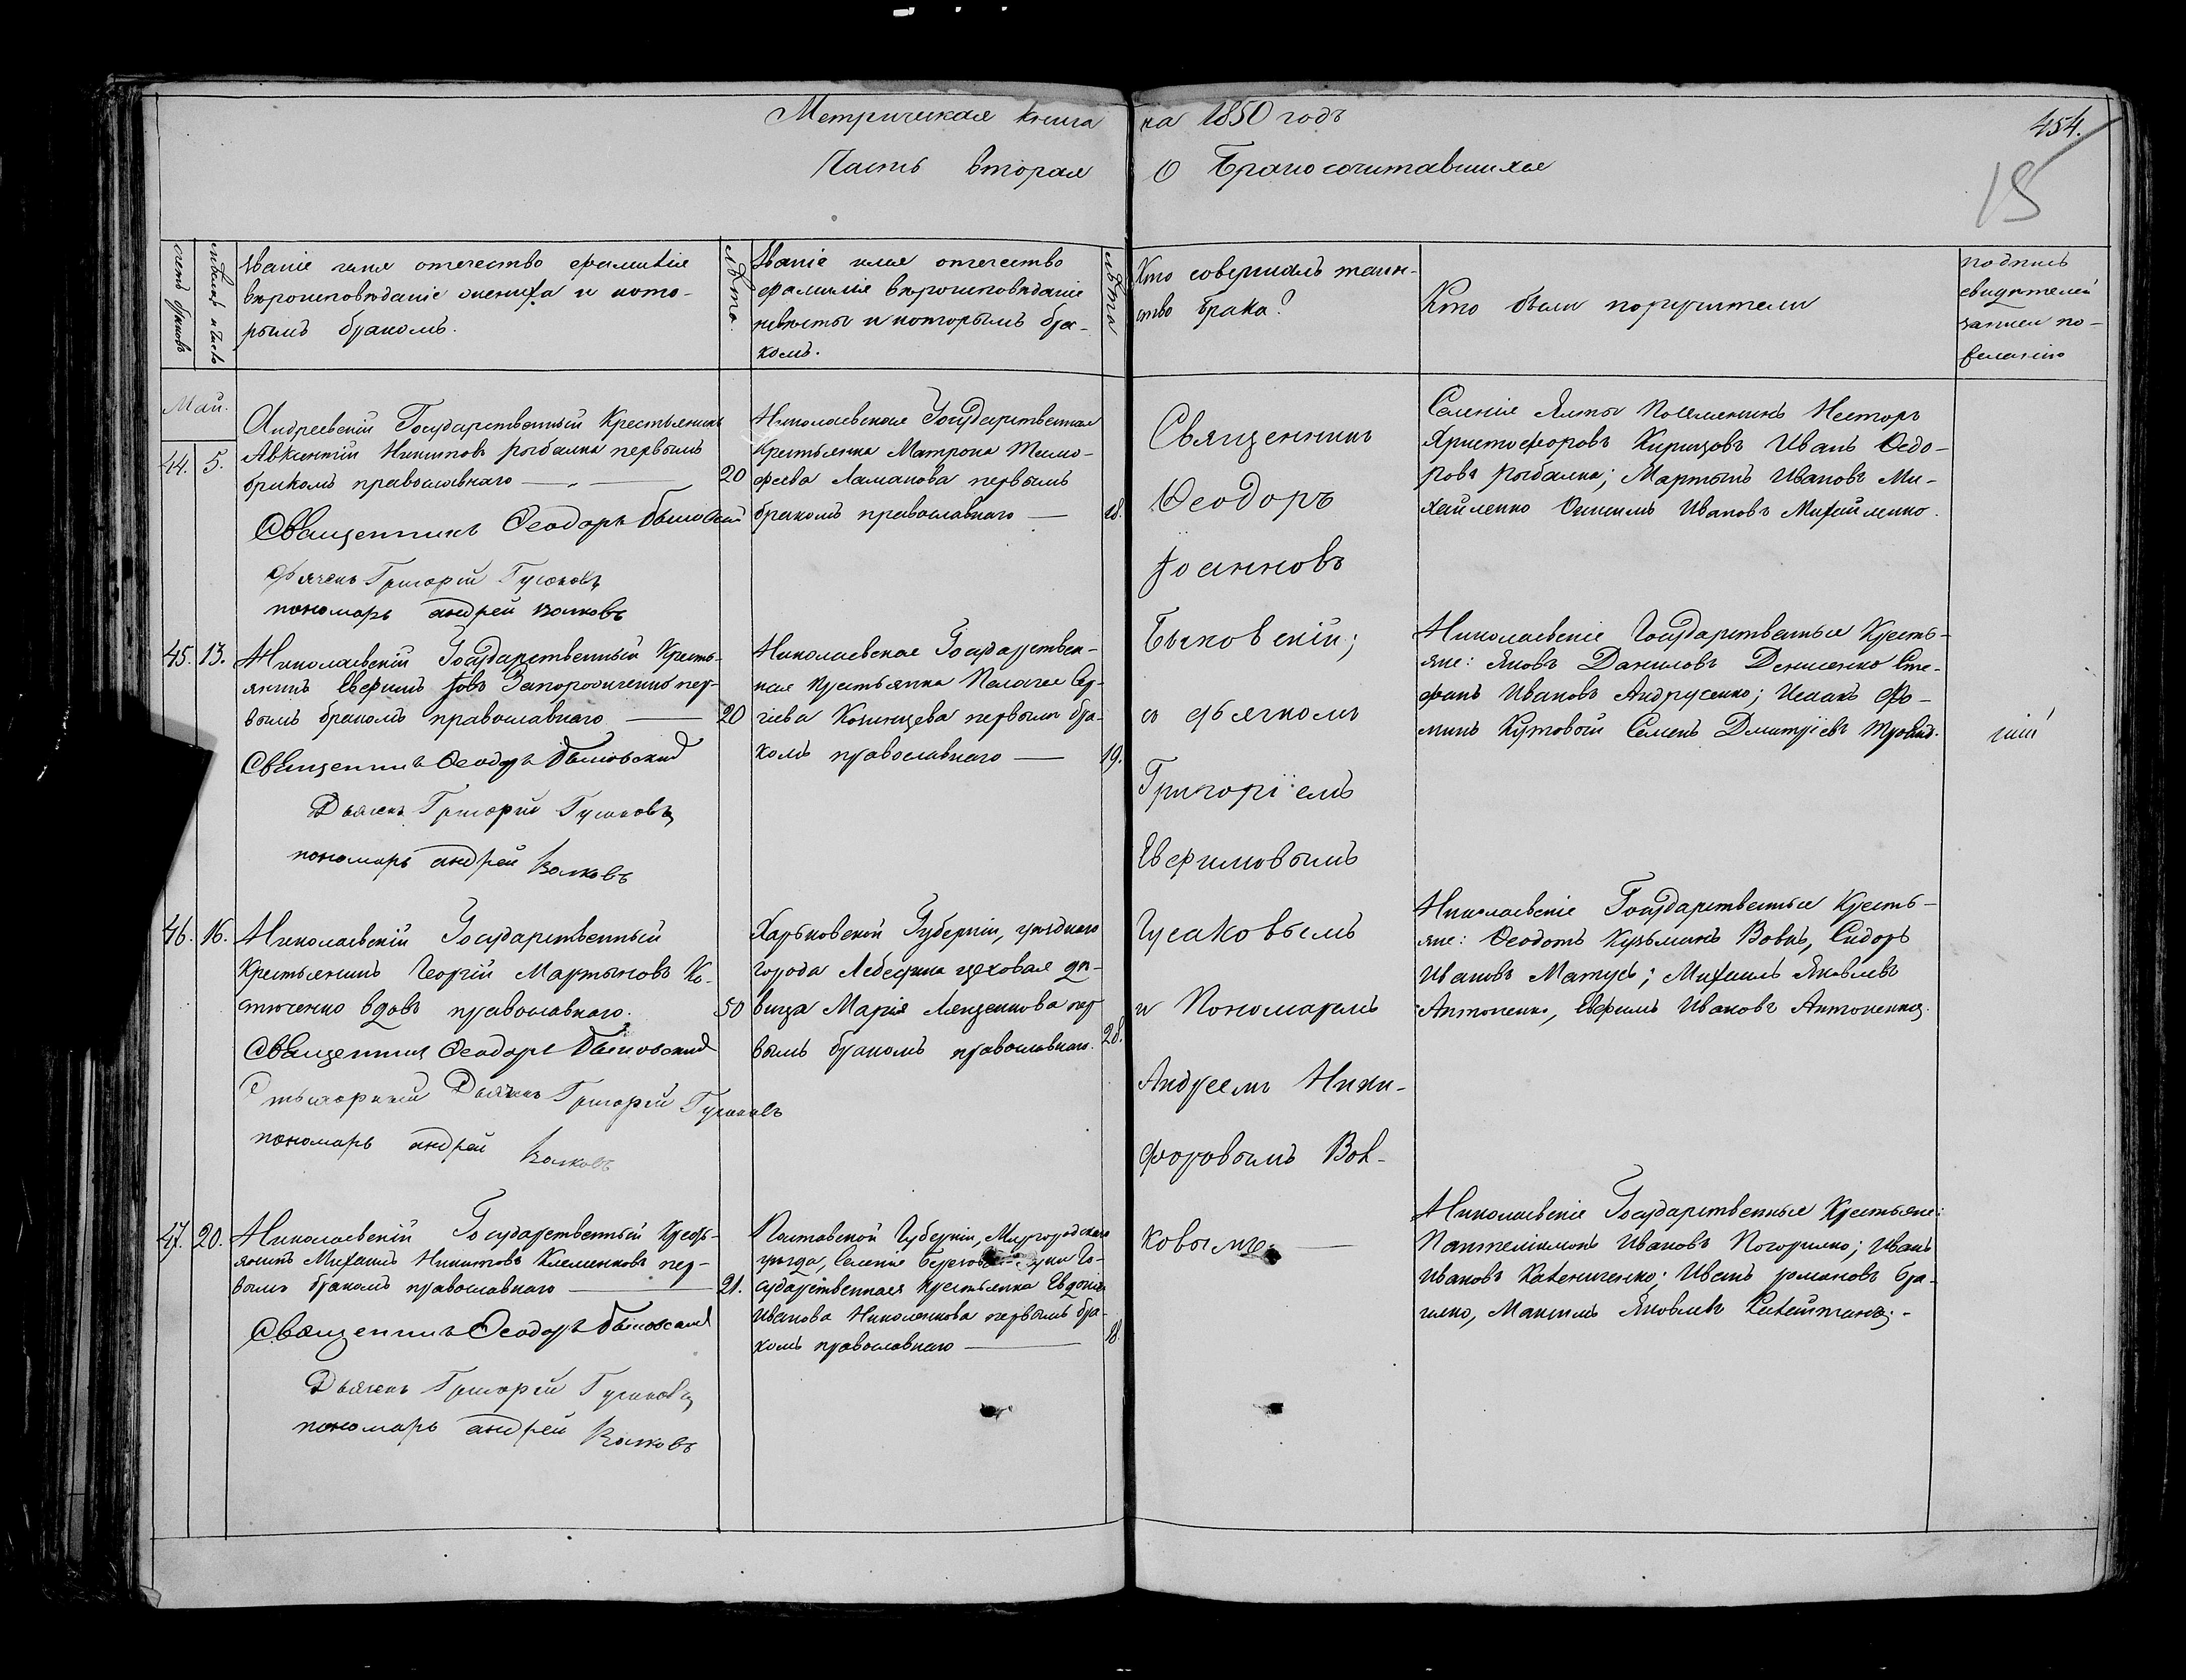 Метрическая книга на 1850 годъ
454.
Часть вторая О Бракосочитавшихся
15
счетъ браковъ
мѣсяцъ и число
Званіе имя отчество фамиліе
вѣроисповѣданіе жениха и кото-
рымъ бракомъ.
лѣта.
Званіе имя отчество
фамиліе вѣроисповѣданіе
невѣсты и которымъ бра-
комъ.
лѣта
Кто совершалъ таин-
ство брака?
Кто были поручители
подпись
свидѣтелей
записи по
желанію
Май.
44. 5.
Андреевскій Государственный Крестьянинъ
Авксентій Никитовъ Рыбалка первымъ
бракомъ православнаго 20
Священникъ Феодоръ Быковскій
Дьячекъ Григорій Гусаковъ
пономарь андрей Волковъ
Николаевская Государственная
Крестьянка Матрона Тимо-
феева Ламанова первымъ
бракомъ православнаго — 18.
Селенія Ялты Поселянинъ Несторъ
Христофоровъ Иванъ Федо-
ровъ Рыбалка; Мартынъ Ивановъ Ми-
хайленко Онисимъ Ивановъ Михайленко.
45. 13.
Николаевскій Государственный Кресть-
янинъ Евфимъ Іовъ Запорожченко пер-
вымъ бракомъ православнаго — 20
Священникъ Феодоръ Быковский
Дьячекъ Григорій Гусаковъ
пономарь андрей Волковъ
Николаевская Государствен-
ная Крестьянка Пелагея Сер-
гіева первымъ бра-
комъ православнаго — 19.
Николаевскіе Государственные Кресть-
яне: Яковъ Даниловъ Денисенко Сте-
фанъ Ивановъ Андрусенко; Исаакъ Фо-
минъ Кутовой Семенъ Дмитріевъ
46. 16.
Николаевскій Государственный
Крестьянинъ Георгій Мартыновъ Ко-
стюченко вдовъ православнаго. 50
Священникъ Феодоръ Быковский
Дьячекъ Григорій Гусаковъ
пономарь андрей Волковъ
Харьковской Губерніи, уѣзднаго
города Лебедина цеховая дѣ-
вица Марія Лященкова пер
вымъ бракомъ православнаго. 28.
Николаевскіе Государственные Кресть-
яне: Феодотъ Кузьминъ Вовкъ, Сидоръ
Ивановъ Матусь; Михаилъ Яковлевъ
Антоненко, Евфимъ Ивановъ Антоненко.
47. 20.
Николаевскій Государственный Кресть-
янинъ Михаилъ Никитовъ Клеменковъ пер-
вымъ бракомъ православнаго — 21.
Священникъ Феодоръ Быковский
Дьячекъ Григорій Гусаковъ
пономарь андрей Волковъ
Полтавской Губерніи, Миргородскаго
уѣзда, Селенія Го-
сударственная крестьянка Евдокія
Иванова Николенкова первымъ бра-
комъ православнаго — 18.
Николаевскіе Государственные Крестьяне:
Пантелимонъ Ивановъ Погорилко; Иванъ
Ивановъ Калениченко; Иванъ романовъ
Максимъ Яковлевъ
Священникъ
Феодоръ
Іоанновъ
Быковскій;
съ дьячкомъ
Григоріемъ
Евфимовымъ
Гусаковымъ
и Пономаремъ
Андреемъ Ники-
форовымъ Вол-
ковымъ.